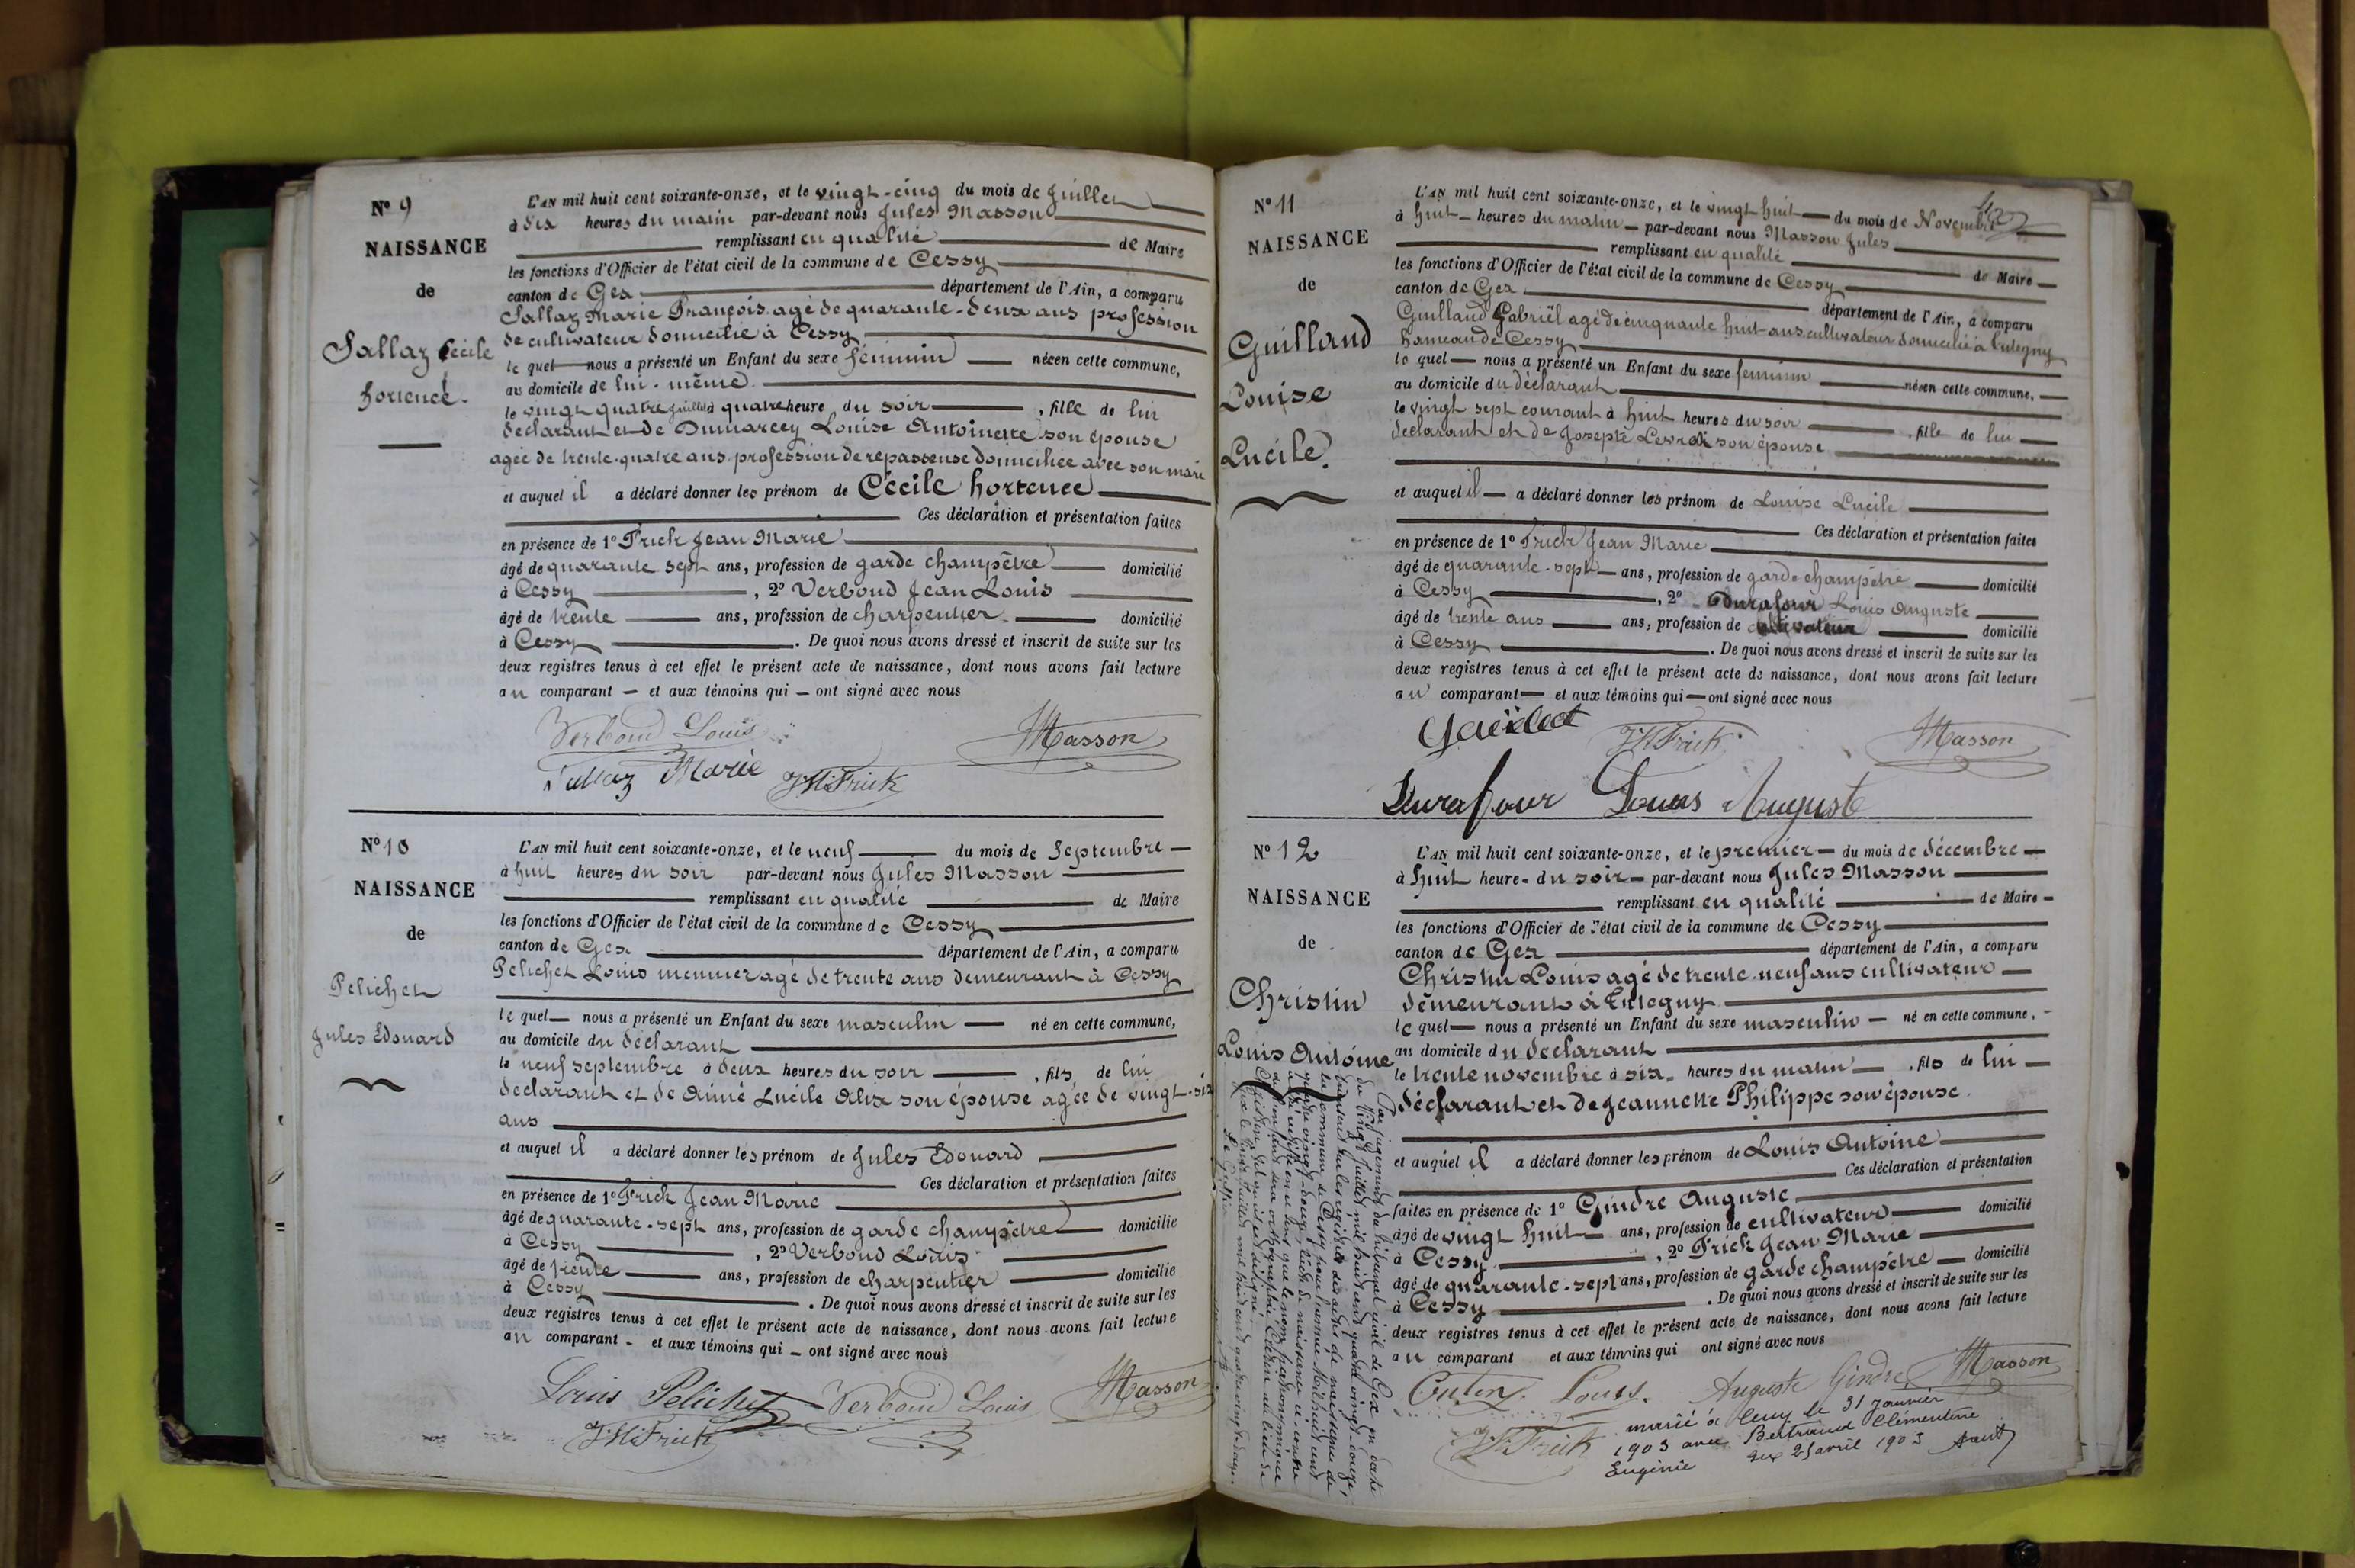 N° 9
NAISSANCE
de
Sallaz Cécile
hortence.
L'AN mil huit cent soixante-onze, et le vingt-cinq du mois de Juillet
à dix heures du matin par-devant nous Jules Masson
remplissant en qualité de Maire
les fonctions d'Officier de l'état civil de la commune de Cessy
canton de Gex département de l'Ain, a comparu
Sallaz Marie François agé de quarante-deux ans profession
de cultivateur domicilié à Cessy
le quel nous a présenté un Enfant du sexe féminin née en cette commune,
au domicile de lui-même
le vingt quatre juillet à quatre heure du soir, fille de lui
déclarant et de Dumarcey Louise Antoinette son épouse
agée de trente-quatre ans profession de repasseuse domiciliée avec son mari
et auquel il a déclaré donner les prénom de Cécile hortence
Ces déclaration et présentation faites
en présence de 1° Frick Jean Marie
âgé de quarante sept ans, profession de garde champêtre domicilié
à Cessy, 2° Verboud Jean Louis
âgé de trente ans, profession de charpentier domicilié
à Cessy. De quoi nous avons dressé et inscrit de suite sur les
deux registres tenus à cet effet le présent acte de naissance, dont nous avons fait lecture
au comparant et aux témoins qui ont signé avec nous
Verboud Louis Masson
Sallaz Marie JM Frick
N° 10
NAISSANCE
de
Pelichet
Jules Edouard
L'AN mil huit cent soixante-onze, et le neuf du mois de Septembre
à huit heures du soir par-devant nous Jules Masson
remplissant en qualité de Maire
les fonctions d'Officier de l'état civil de la commune de Cessy
canton de Gex département de l'Ain, a comparu
Pelichet Louis meunier agé de trente ans demeurant à Cessy
le quel nous a présenté un Enfant du sexe masculin né en cette commune,
au domicile du déclarant
le neuf septembre à deux heures du soir, fils de lui
déclarant et de Aimé Lucile Alix son épouse agée de vingt-six
ans
et auquel il a déclaré donner les prénom de Jules Edouard
Ces déclaration et présentation faites
en présence de 1° Frick Jean Marie
âgé de quarante-sept ans, profession de garde champêtre domicilié
à Cessy, 2° Verboud Louis
âgé de trente ans, profession de charpentier domicilié
à Cessy. De quoi nous avons dressé et inscrit de suite sur les
deux registres tenus à cet effet le présent acte de naissance, dont nous avons fait lecture
au comparant et aux témoins qui ont signé avec nous
Louis Pelichet Verboud Louis Masson
JM Frick
N° 11
NAISSANCE
de
Guilland
Louise
Lucile.
L'AN mil huit cent soixante-onze, et le vingt huit du mois de Novembre
à huit heures du matin par-devant nous Masson Jules
remplissant en qualité de Maire
les fonctions d'Officier de l'état civil de la commune de Cessy
canton de Gex département de l'Ain, a comparu
Guilland Gabriël agé de cinquante huit ans cultivateur domicilié à Tutegny
hameau de Cessy
le quel nous a présenté un Enfant du sexe feminin née en cette commune,
au domicile du déclarant
le vingt sept courant à huit heures du soir, fille de lui
déclarant et de Josepte Levrat son épouse
et auquel il a déclaré donner les prénom de Louise Lucile
Ces déclaration et présentation faites
en présence de 1° Frick Jean Marie
âgé de quarante-sept ans, profession de garde champêtre domicilié
à Cessy, 2° Durafour Louis Auguste
âgé de trente ans ans, profession de cultivateur domicilié
à Cessy. De quoi nous avons dressé et inscrit de suite sur les
deux registres tenus à cet effet le présent acte de naissance, dont nous avons fait lecture
au comparant et aux témoins qui ont signé avec nous
JM Frick Masson
Durafour Louis Auguste
N° 12
NAISSANCE
de
Christin
Louis Antoine
L'AN mil huit cent soixante-onze, et le premier du mois de décembre
à huit heures du soir par-devant nous Jules Masson
remplissant en qualité de Maire
les fonctions d'Officier de l'état civil de la commune de Cessy
canton de Gex département de l'Ain, a comparu
Christin Louis agé de trente-neuf ans cultivateur
demeurant à Tutegny
le quel nous a présenté un Enfant du sexe masculin né en cette commune,
au domicile du déclarant
le trente novembre à six heures du matin, fils de lui
déclarant et de Jeannette Philippe son épouse
et auquel il a déclaré donner les prénom de Louis Antoine
Ces déclaration et présentation
faites en présence de 1° Gindre Auguste
âgé de vingt huit ans, profession de cultivateur domicilié
à Cessy, 2° Frick Jean Marie
âgé de quarante-sept ans, profession de garde champêtre domicilié
à Cessy. De quoi nous avons dressé et inscrit de suite sur les
deux registres tenus à cet effet le présent acte de naissance, dont nous avons fait lecture
au comparant et aux témoins qui ont signé avec nous
Louis. Auguste Gindre Masson
JM Frick
marié à Cessy le 31 Janvier
1903 avec Bertrand Clémentine
Eugénie Gex 25 avril 1903
Par jugement du tribunal civil de Gex en date
du vingt juillet mil huit cent quatre vingt-douze,